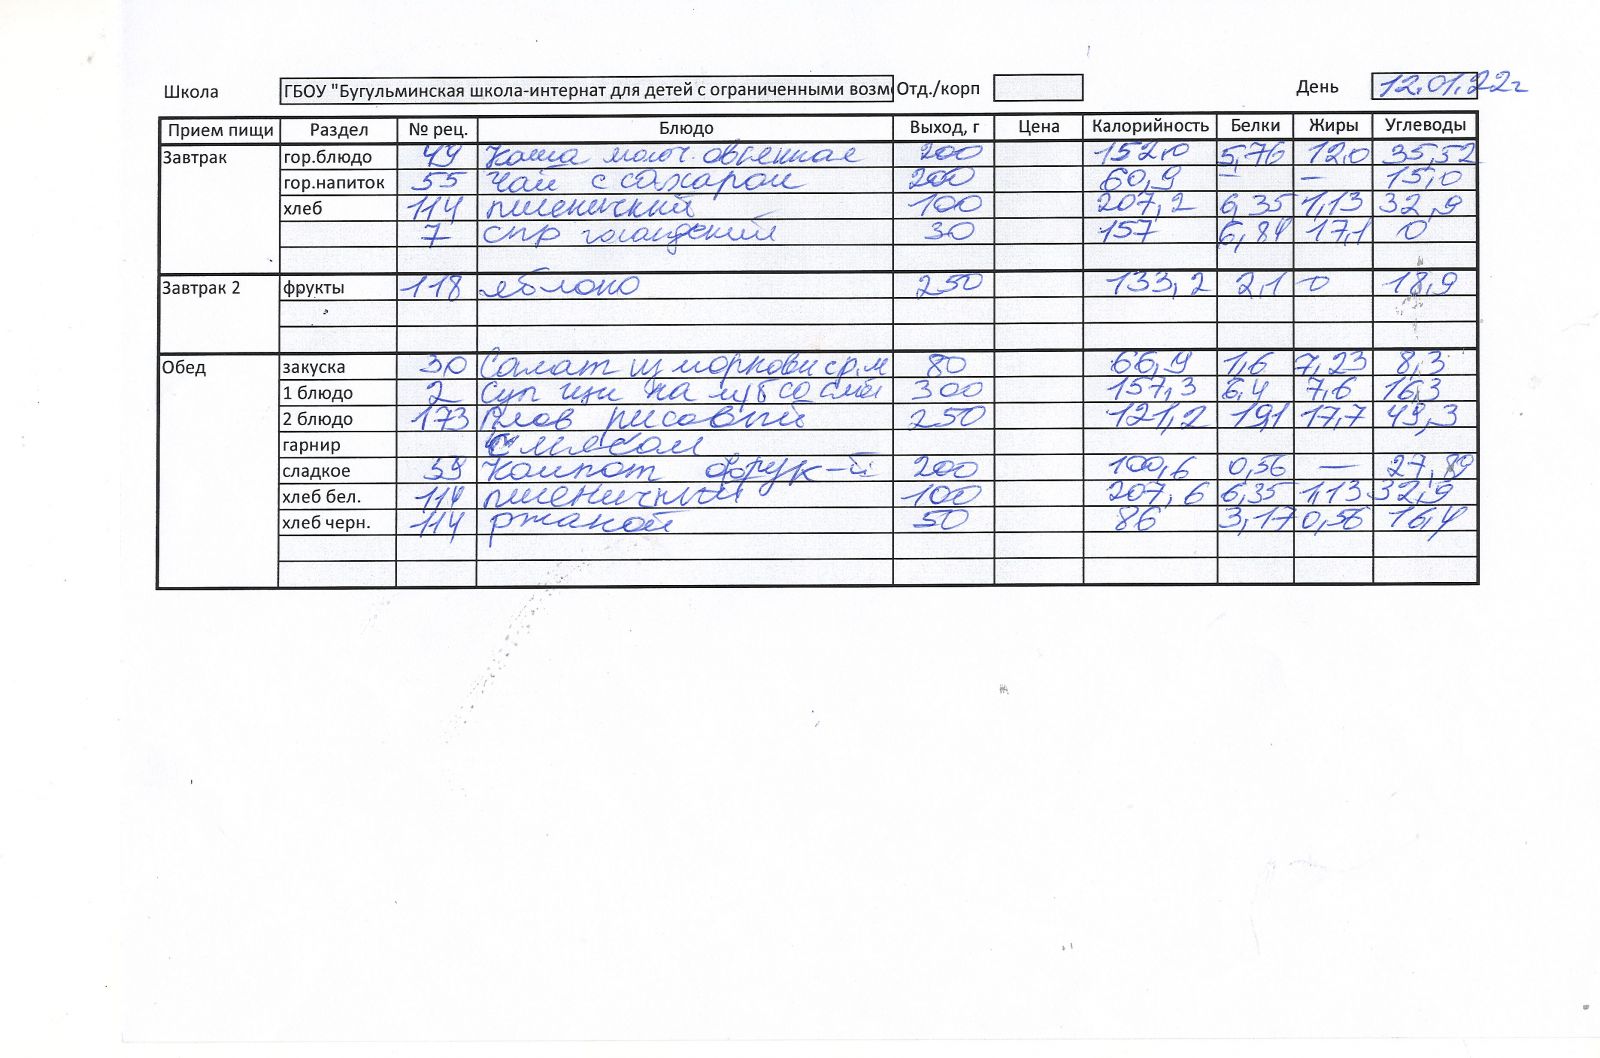 Школа ГБОУ "Бугульминская школа-интернат для детей с ограниченными возм Отд./корп День 12.01.22г
Прием пищи Раздел № рец. Блюдо Выход, г Цена Калорийность Белки Жиры Углеводы
Завтрак гор.блюдо 49 Каша молоч. овсянная 200 152,0 5,76 12,0 35,52
гор.напиток 55 Чай с сахаром 200 60,9 – – 15,0
хлеб 114 пшеничный 100 207,2 6,35 1,13 32,9
7 сыр голандский 30 157 6,84 17,1 0
Завтрак 2 фрукты 118 яблоко 250 133,2 2,1 0 18,9
Обед закуска 30 Салат из моркови с р.м 80 66,9 1,6 7,23 8,3
1 блюдо 2 Суп щи на со 300 157,3 6,4 7,6 16,3
2 блюдо 173 Плов рисовый 250 121,2 19,1 17,7 49,3
гарнир с мясом
сладкое 59 Компот фрук-й 200 100,6 0,56 — 27,89
хлеб бел. 114 пшеничный 100 207,6 6,35 1,13 32,9
хлеб черн. 114 ржаной 50 86 3,17 0,56 16,4